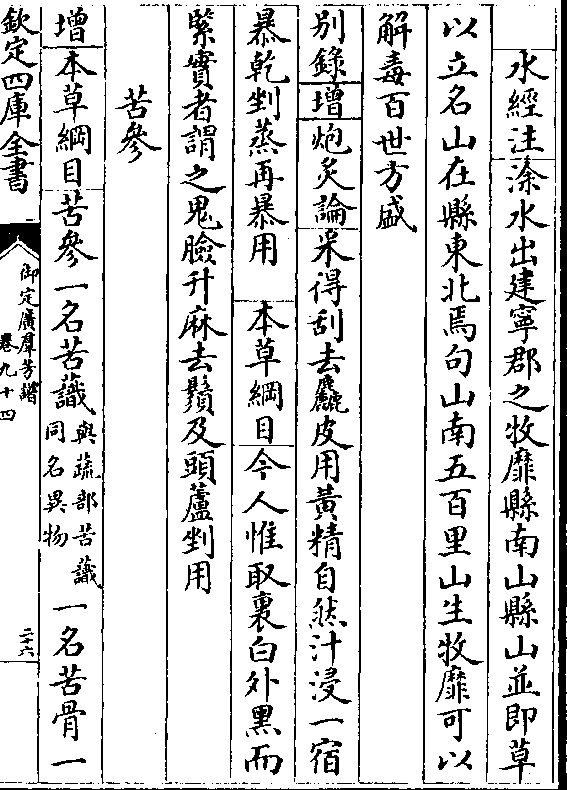 水經注涂水出建寧郡之牧靡縣南山縣山並即草
以立名山在縣東北烏句山南五百里山生牧靡可以
解毒百世方盛
別錄增炮炙論采得刮去麤皮用黃精自然汁浸一宿
暴乾剉蒸再暴用 本草綱目今人惟取裏白外黑而
緊實者謂之鬼臉升麻去鬚及頭蘆剉用
苦參
增本草綱目苦參一名苦蘵與蔬部苦蘵同名異物一名苦骨一
欽定四庫全書
御定廣羣芳譜
卷九十四
二十六